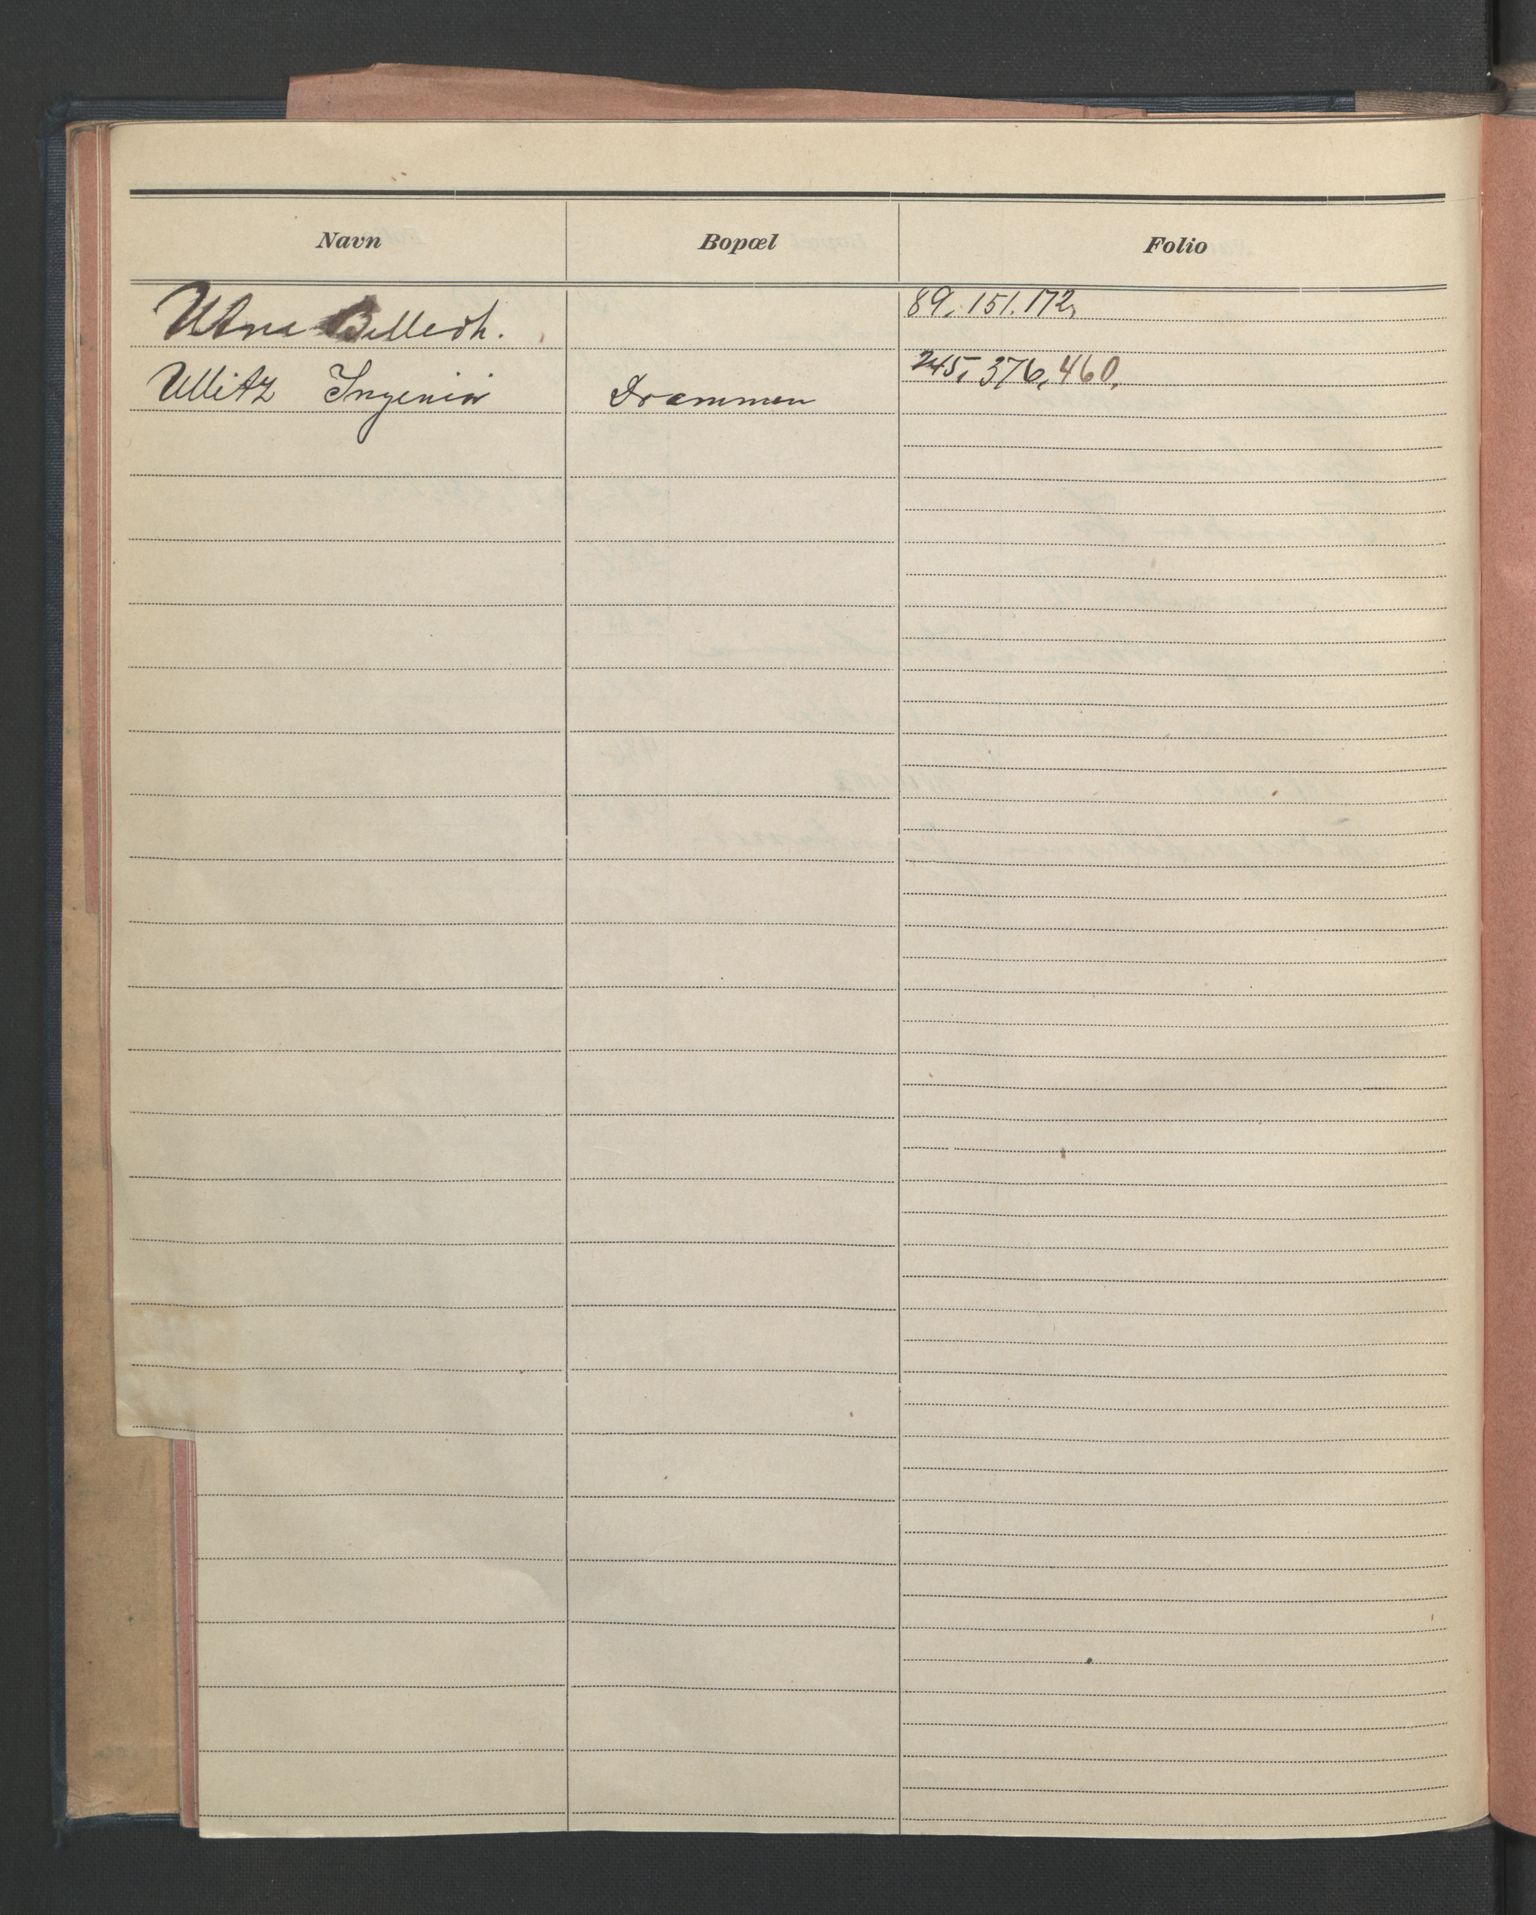 Navn Bopæl Folio
Utne Billedh. 89, 151, 172,
Ullitz Ingeniør Drammen 245, 376, 460,